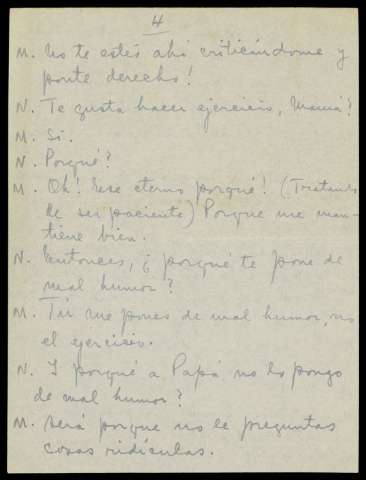 4
M. No te estés ahí criticándome y
ponte derecho!
N. Te gusta hacer ejercicio, Mamá?
M. Sí.
N. Porqué?
M. Oh! Ese eterno porqué! (Tratando
de ser paciente) Porque me man-
tiene bien.
N. Entonces, ¿porqué te pone de
mal humor?
M. Tú me pones de mal humor, no
el ejercicio.
N. Y porqué a Papá no lo pongo
de mal humor?
M. Será porque no le preguntas
cosas ridículas.